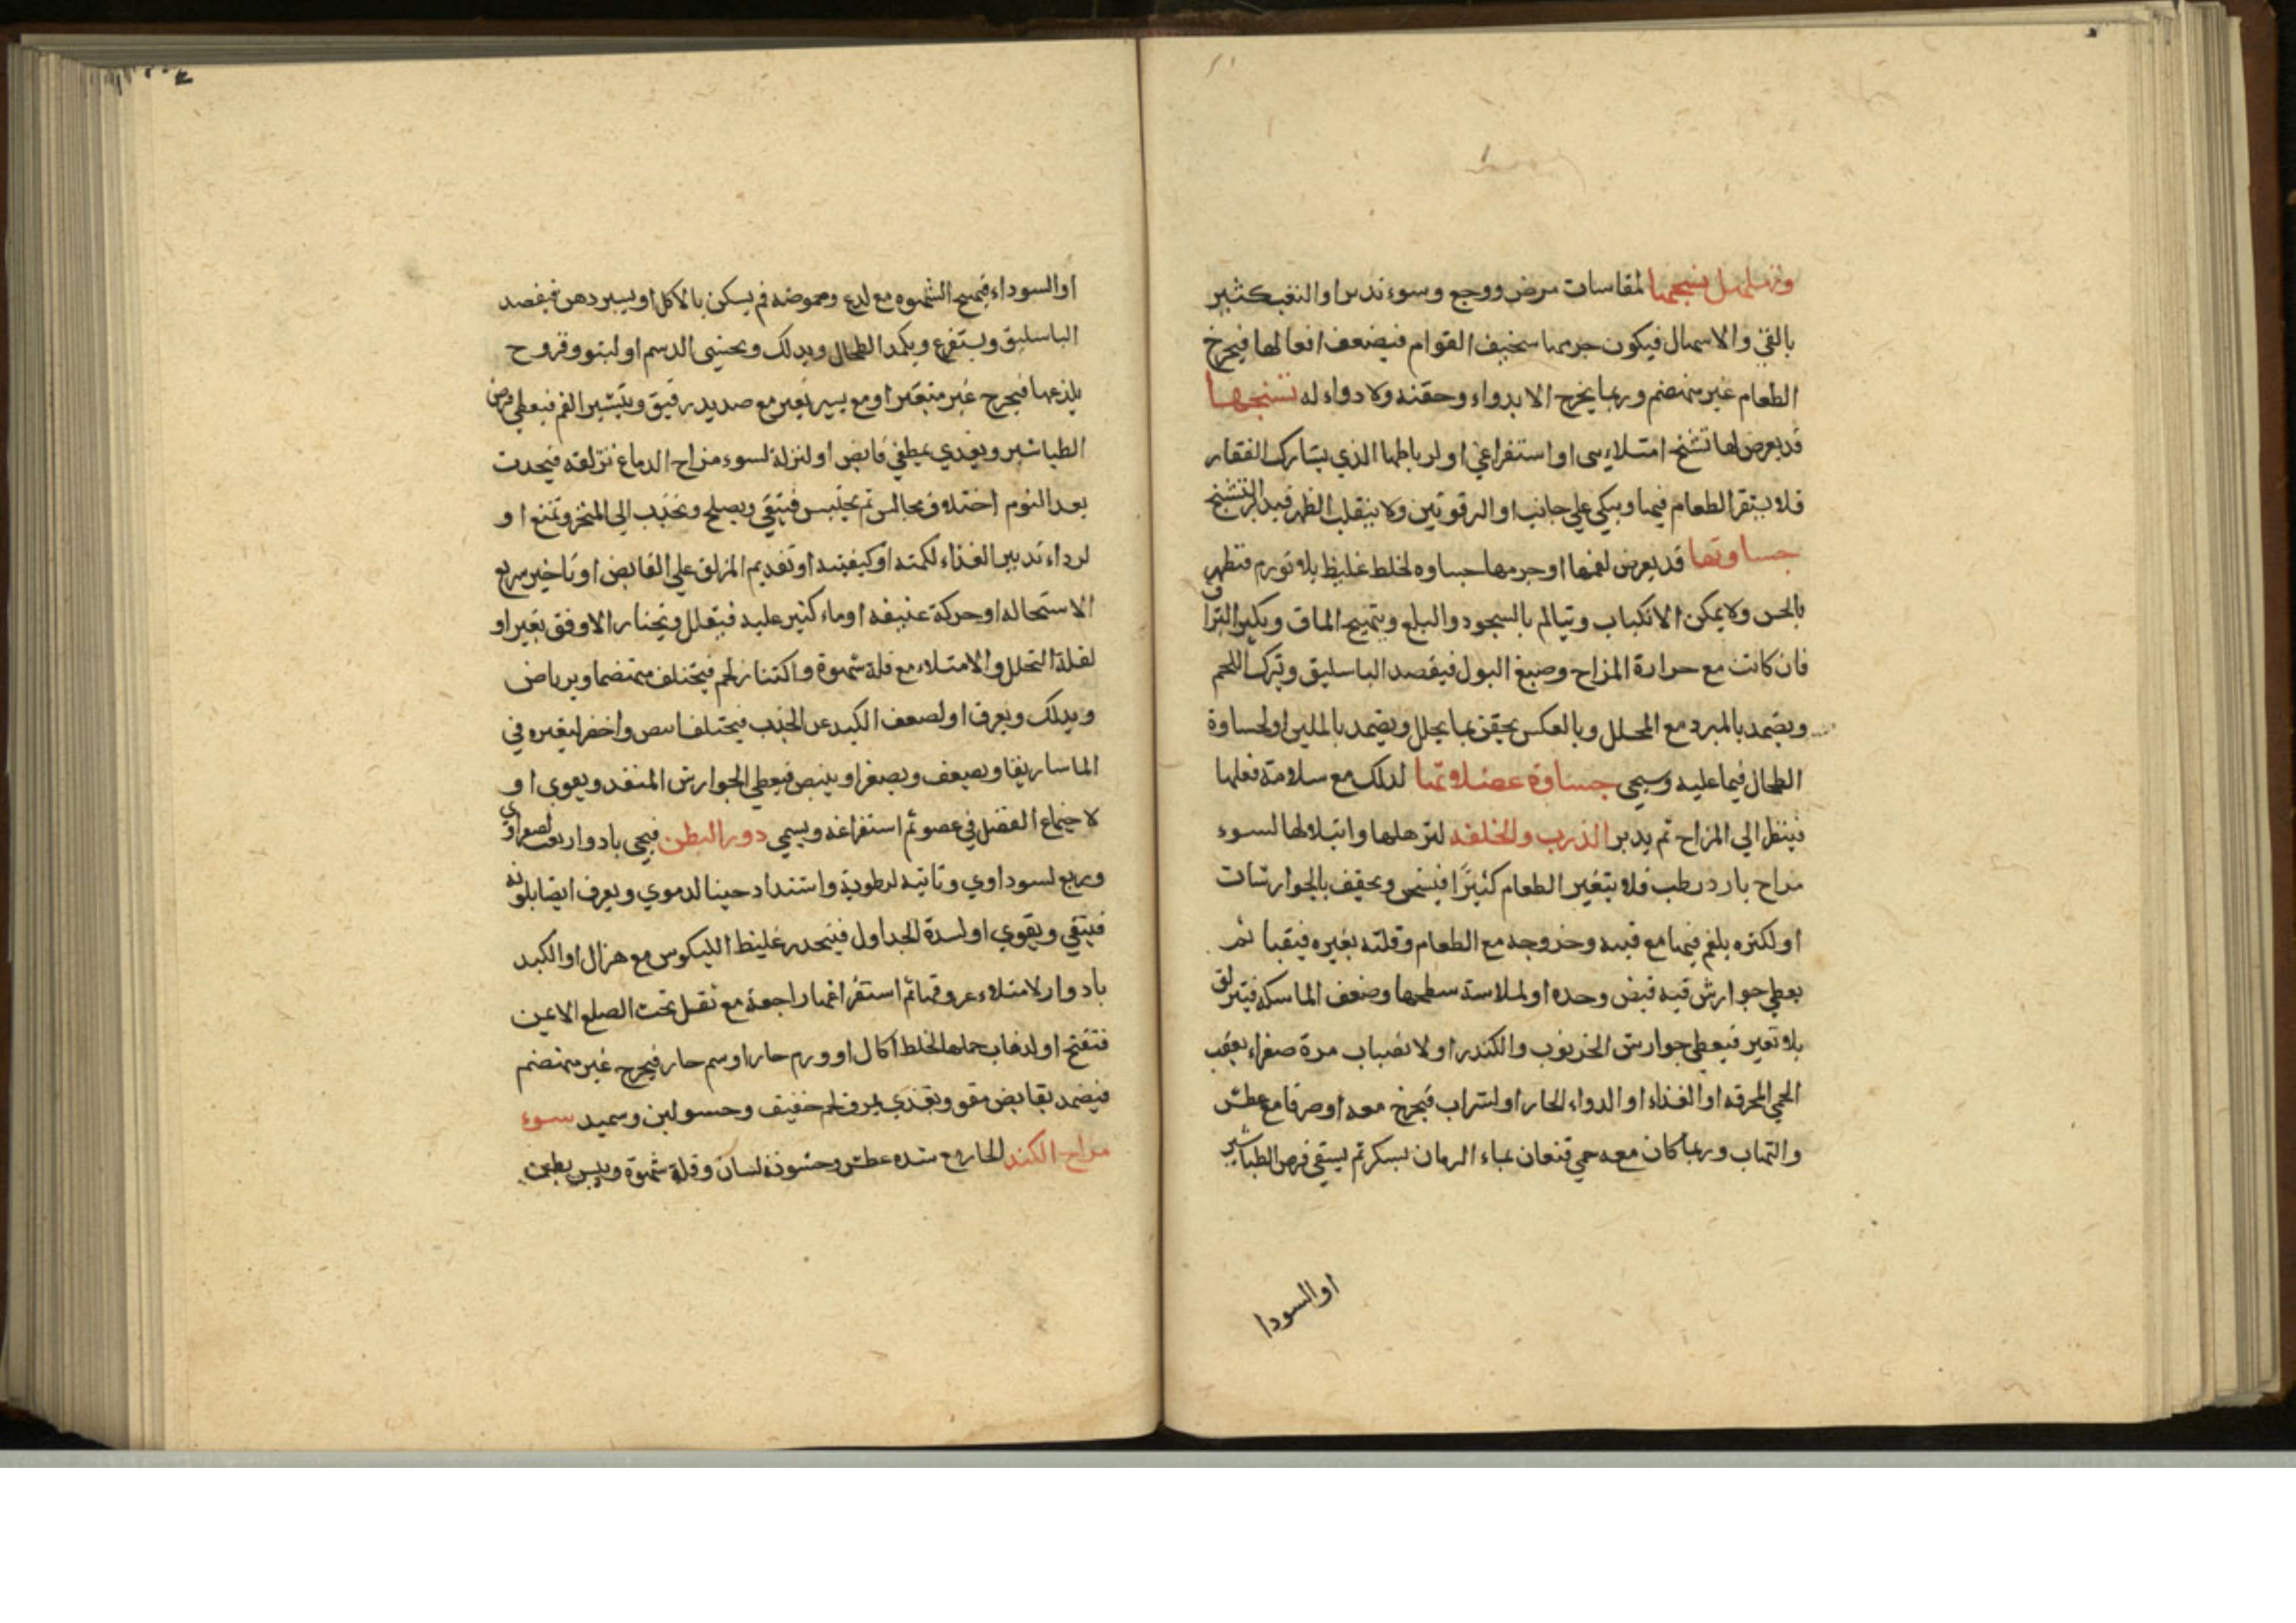 وتهلهل نسجها لمقاسات مرض ووجع وسوء تدبير او النقب كثير
بالقئ والاسهال فيكون جرمها سخيف القوام فيضعف افعالها فيخرج
الطعام غير منهضم وربما يخرج الا بدواء وحقنه ولا دواء له تشنجها
قد يعرض لها تشنج امتلايى او استفراغي او لرباطها الذي يشارك الفقار
فلا يستقر الطعام فيها ويتكي علي جانب او الترقوتين ولا ينقلب لظهر فيدبر التشنج
جساوتها قد يعرض لفمها او جرمها جساوه لخلط غليظ بلا تورم فتظهر
بالجس ولا يمكن الانكباب ويتالم بالسجود والبلع ويتهيج الماق ويكثر البزاق
فان كانت مع حرارة المزاج وصبغ البول فيفصد الباسليق وترك اللحم
ويضمد بالمبرد مع المحلل وبالعكس يحقن بما يحلل ويضمد بالملين او لجساوة
الطحال فيما عليه وسيجى جساوة عضلاتها لذلك مع سلامة فعلها
فينظر الي المزاج ثم يدبر الذرب والخلفه لترهلها وابتلالها لسوء
مزاج بارد رطب فلا يتغير الطعام كثيرًا فيسخن ويجفف بالجوارشات
او لكثره بلغم فيها مع قيئه وخروجه مع الطعام وقلته بغيره فينقيا ثم
يعطي جوارش فيه قبض وحده او لملاسة سطحها وضعف الماسكه فينزلق
بلا تغير فيعطي جوارش الخرنوب والكندر او لانصباب مرة صفراء بعقب
الحمي المحرقه او الغذاء او الدواء الحار او الشراب فيخرج معه او صرفا مع عطش
والتهاب وربما كان معه حمي فتعان بماء الرمان بسكر ثم يسقي قرص الطباشير
او السودا
او السوداء فيهيج الشهوه مع لدع وحموضه فم يسكن بالاكل او يسير دهن فيفصد
الباسليق ويستفرغ ويكمد الطحال ويدلك ويحسي الدسم او لبثور وقروح
يلذعها فيخرج غير متغير او مع يسير تغير مع صديد رقيق ويتبثر الفم فيعطي قرص
الطباشير ويغذي بمطفي قابض او لنزلة لسوء مزاج الدماغ تزلقه فيحدث
بعد النوم اختلاف مجالس ثم يحتبس فينقي ويصلح وتجذب الي المنخر وتمنع او
لرداء تدبير الغذاء لكمته او كيفيته او تقديم المزلق علي القابض او تاخير سريع
الاستحاله او حركة عنيفه او ماء كثير عليه فيقلل ويختار الاوفق بغير او
لقلة التحلل والامتلاء مع قلة شهوة واكتناز لحم فيختلف منهضما ويرياض
ويدلك ويعرق او لضعف الكبد عن الجذب فيختلف ابيض واخضر لتغيره في
الماساريقا ويضعف ويصفر او ينبض فيعطي الجوارش المنفذ ويقوي او
لاجتماع الفضل في عضو ثم استفراغه ويسمي دور البطن فيجى بادوار لغب لصفراوي
وربع لسوداوي وتانيه لرطوبة واشتداد حينا لدموي ويعرف ايضا بلونه
فينقي ويقوي او لسدة الجداول فينحدر غليظ الكيلوس مع هزال او الكبد
بادوار لامتلاء عروقها ثم استفراغها راجعة مع ثقل تحت الضلع الايمن
فتفتح او لذهاب خملها لخلط اكال او ورم حار او سم حار فيخرج غير منهضم
فيضمد بقابض مقو ويغذي بمرق لحم خفيف وحسو لبن وسميد سوء
مزاج الكبد الحار مع شده عطش وخشونة لسان وقلة شهوة ويبس بطن